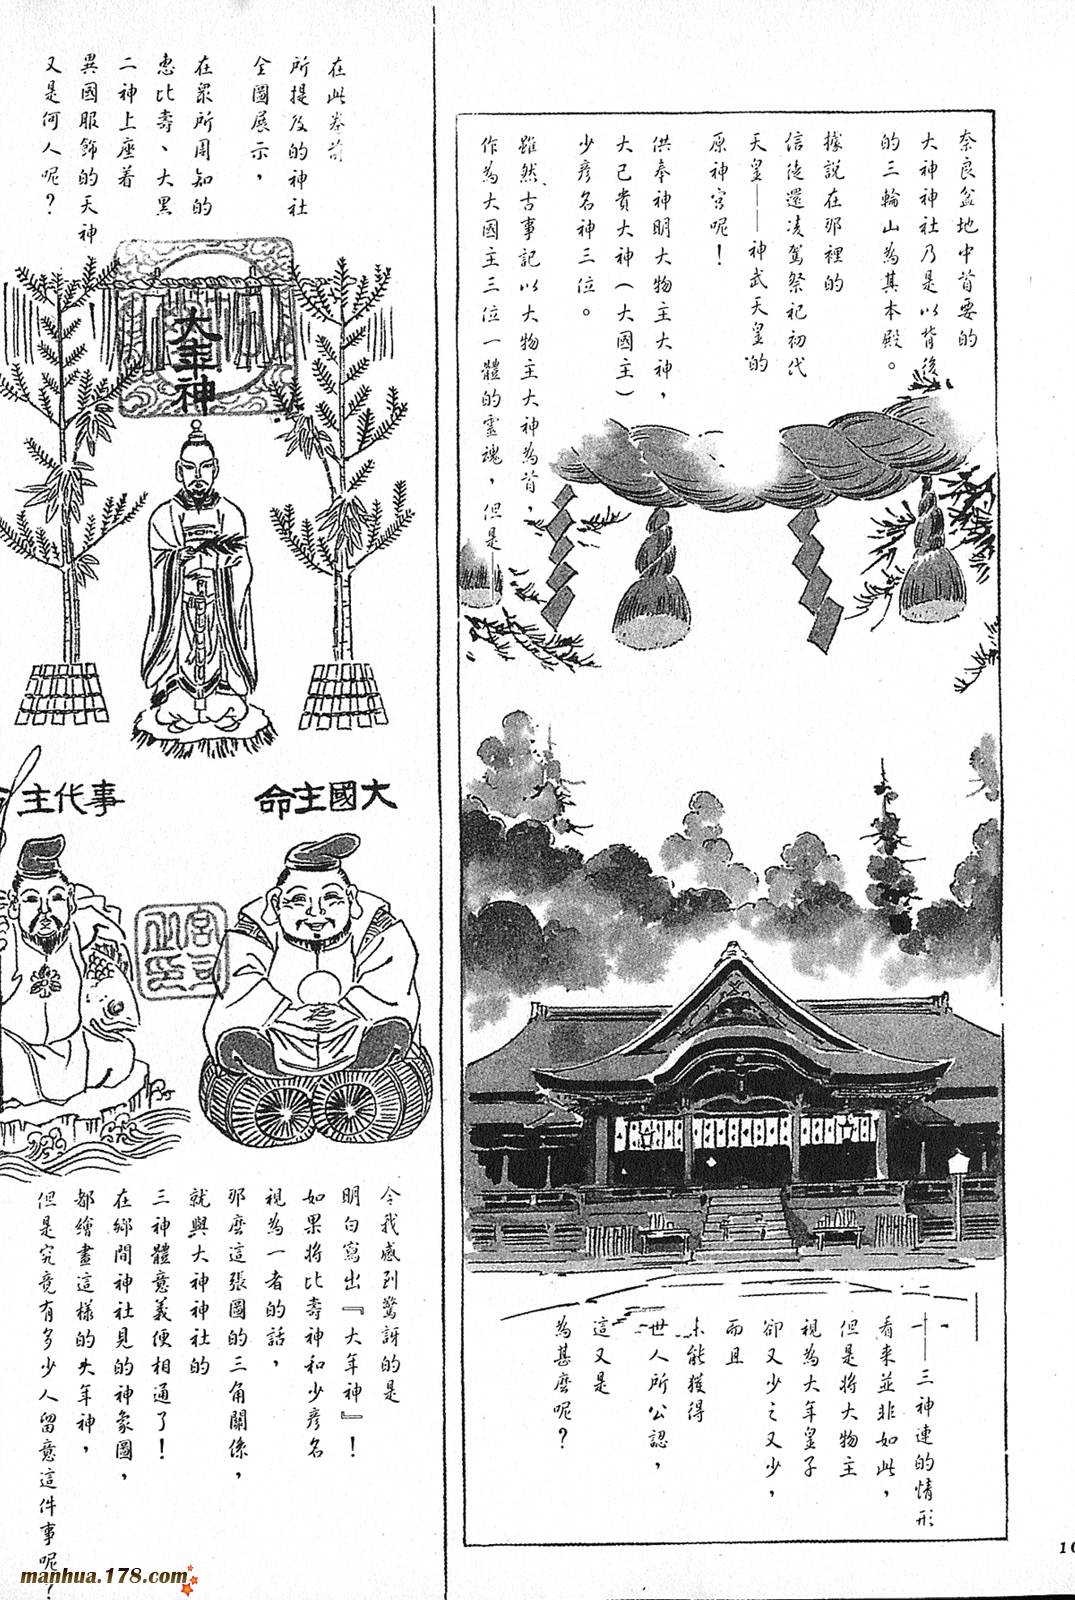 奈良盆地中首要的
大神神社乃是以背後
的三輪山為其本殿。
據說在那裡的
信徒還凌駕祭祀初代
天皇——神武天皇的
原神宮呢！
供奉神明大物主大神，
大己貴大神（大國主）
少彥名神三位。
雖然古事記以大物主大神為首，
作為大國主三位一體的靈魂，但是——
——三神連的情形
看來並非如此，
但是將大物主
視為大年皇子
卻又少之又少，
而且
未能獲得
世人所公認，
這又是
為甚麼呢？
在此卷首
所提及的神社
全圖展示，
在眾所周知的
惠比壽、大黑
二神上座着
異國服飾的天神
又是何人呢？
大年神
大國主命
事代主命
宮司之印
令我感到驚訝的是
明白寫出『大年神』！
如果將比壽神和少彥名
視為一者的話，
那麼這張圖的三角關係，
就與大神神社的
三神體意義便相通了！
在鄉間神社見的神象圖，
都繪畫這樣的大年神，
但是究竟有多少人留意這件事呢？
manhua.178.com